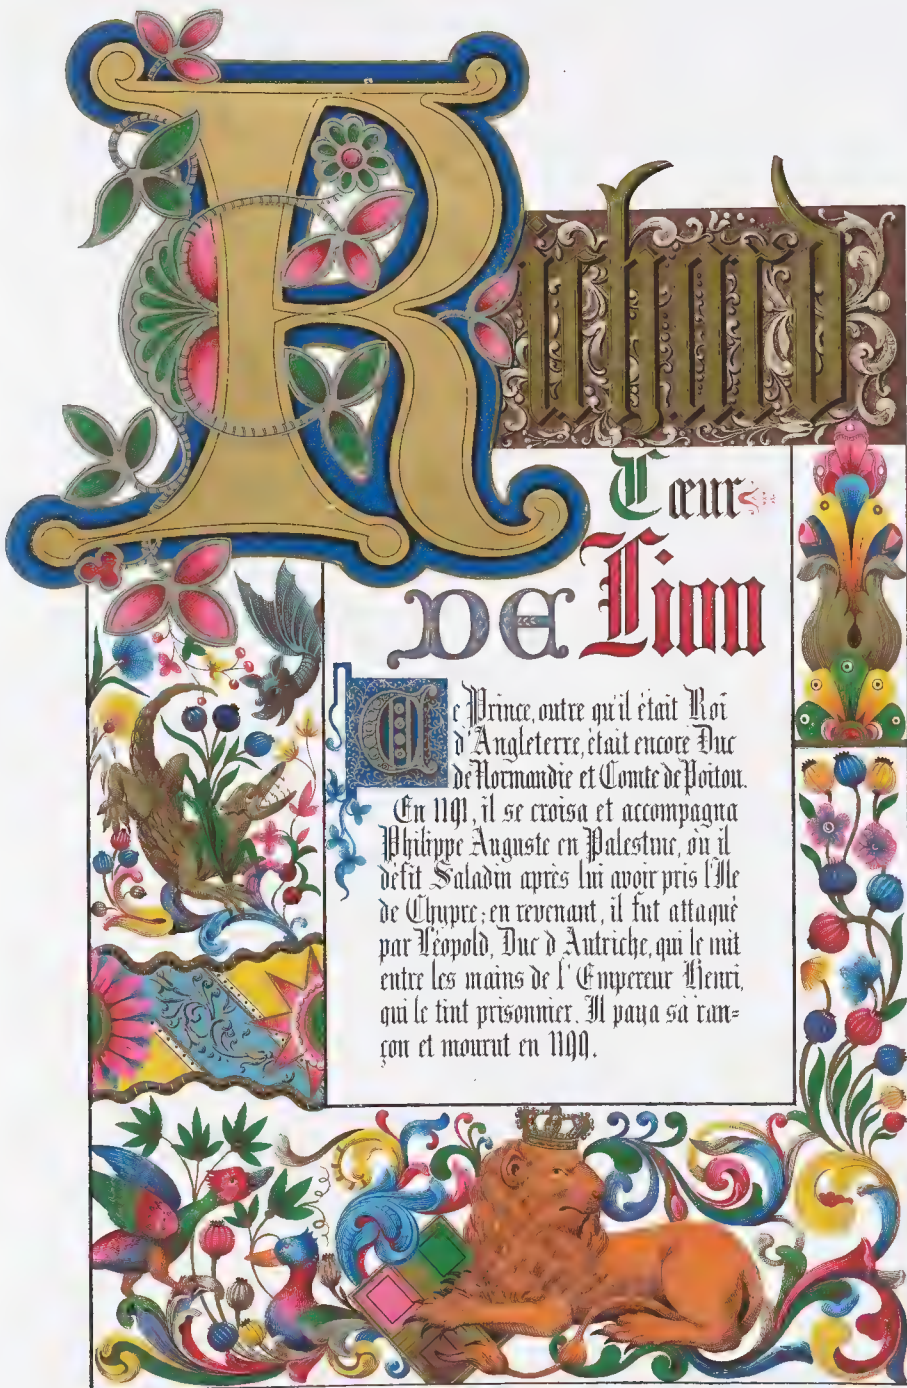 Richard
Cœur
DE Lion
Ce Prince, outre qu'il était Roi
d'Angleterre, était encore Duc
de Normandie et Comte de Poitou.
En 1191, il se croisa et accompagna
Philippe Auguste en Palestine, où il
défit Saladin après lui avoir pris l'Ile
de Chypre; en revenant, il fut attaqué
par Léopold, Duc d'Autriche, qui le mit
entre les mains de l'Empereur Henri,
qui le tint prisonnier. Il paya sa ran=
çon et mourut en 1199.